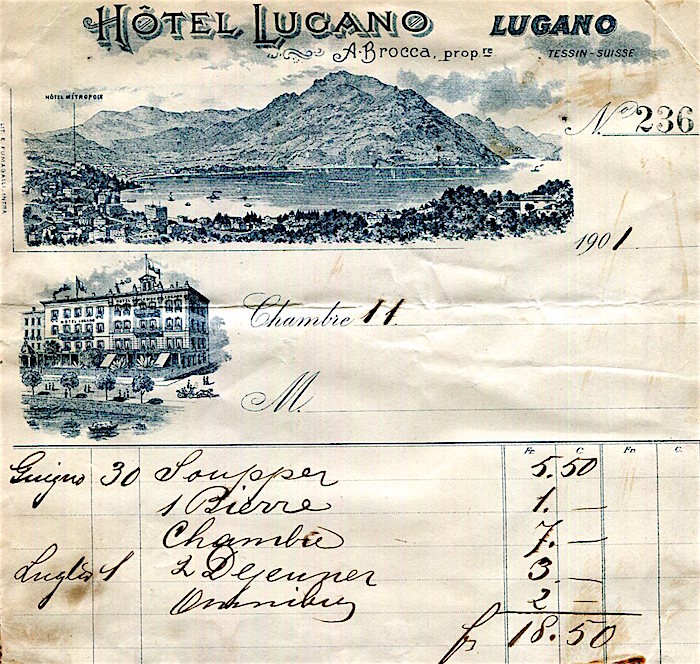 HÔTEL LUGANO
A. BROCCA, propre
LUGANO
TESSIN-SUISSE
HÔTEL MÉTROPOLE
No 236
1901
HOTEL LUGANO
Chambre 11
M.
Fr. C. Fr. C.
Guigno 30 Soupper 5.50
1 Bierre 1. —
Chambre 7. —
Luglio 1 2 Dejeuner 3 —
Omnibus 2 —
fr 18.50